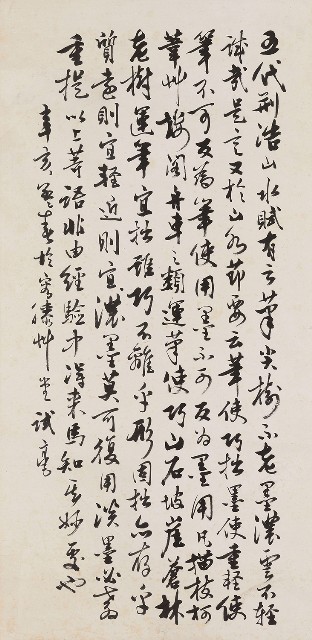 五代荆浩山水賦有云筆尖樹不老墨濃雲不輕
誠哉是言又於山水節要云筆使巧拙墨使重輕使
筆不可反為筆使用墨不可反為墨用凡描枝柯
葦艸樓閣舟車之類運筆使巧山石坡崖蒼林
老樹運筆宜拙雖巧不離乎形固拙亦存乎
質遠則宜輕近則宜濃濃墨莫可復用淡墨必教
重提以上等語非由經驗中得來焉知其妙處也
辛亥春於艸堂試